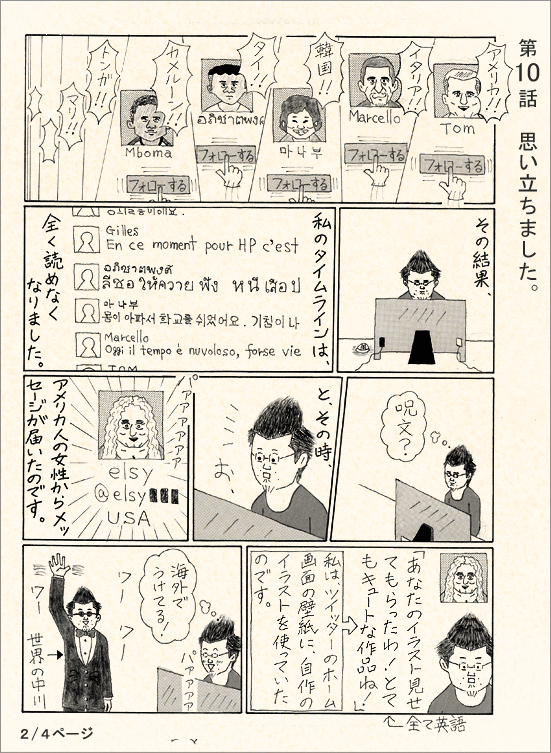 第10話 思い立ちました。
アメリカ!!
Tom
フォローする
イタリア!!
Marcello
フォローする
韓国!!
마나부
フォローする
タイ!!
อภิชาตพงศ์
フォローする
カメルーン!!
Mboma
フォローする
トンガ!!
マリ!!
その結果、
私のタイムラインは、
Gilles
En ce moment pour HP c'est
อภิชาตพงศ์
ลีซอ ให้ควาย ฟัง หนี เสือ ป
마나부
몸이 아파서 학교를 쉬었어요. 기침이 나
Marcello
Oggi il tempo è nuvoloso, forse vie
TOM
全く読めなく
なりました。
呪文?
と、その時、
お、
パアアアアアア
elsy
@elsy
USA
アメリカ人の女性からメッ
セージが届いたのです。
「あなたのイラスト見せ
てもらったわ!とて
もキュートな作品ね!」
←全て英語
私は、ツイッターのホーム
画面の壁紙に、自作の
イラストを使っていた
のです。
海外で
うけてる!
パアアアア
ワー
ワー
ワー
世界の中川
2/4ページ